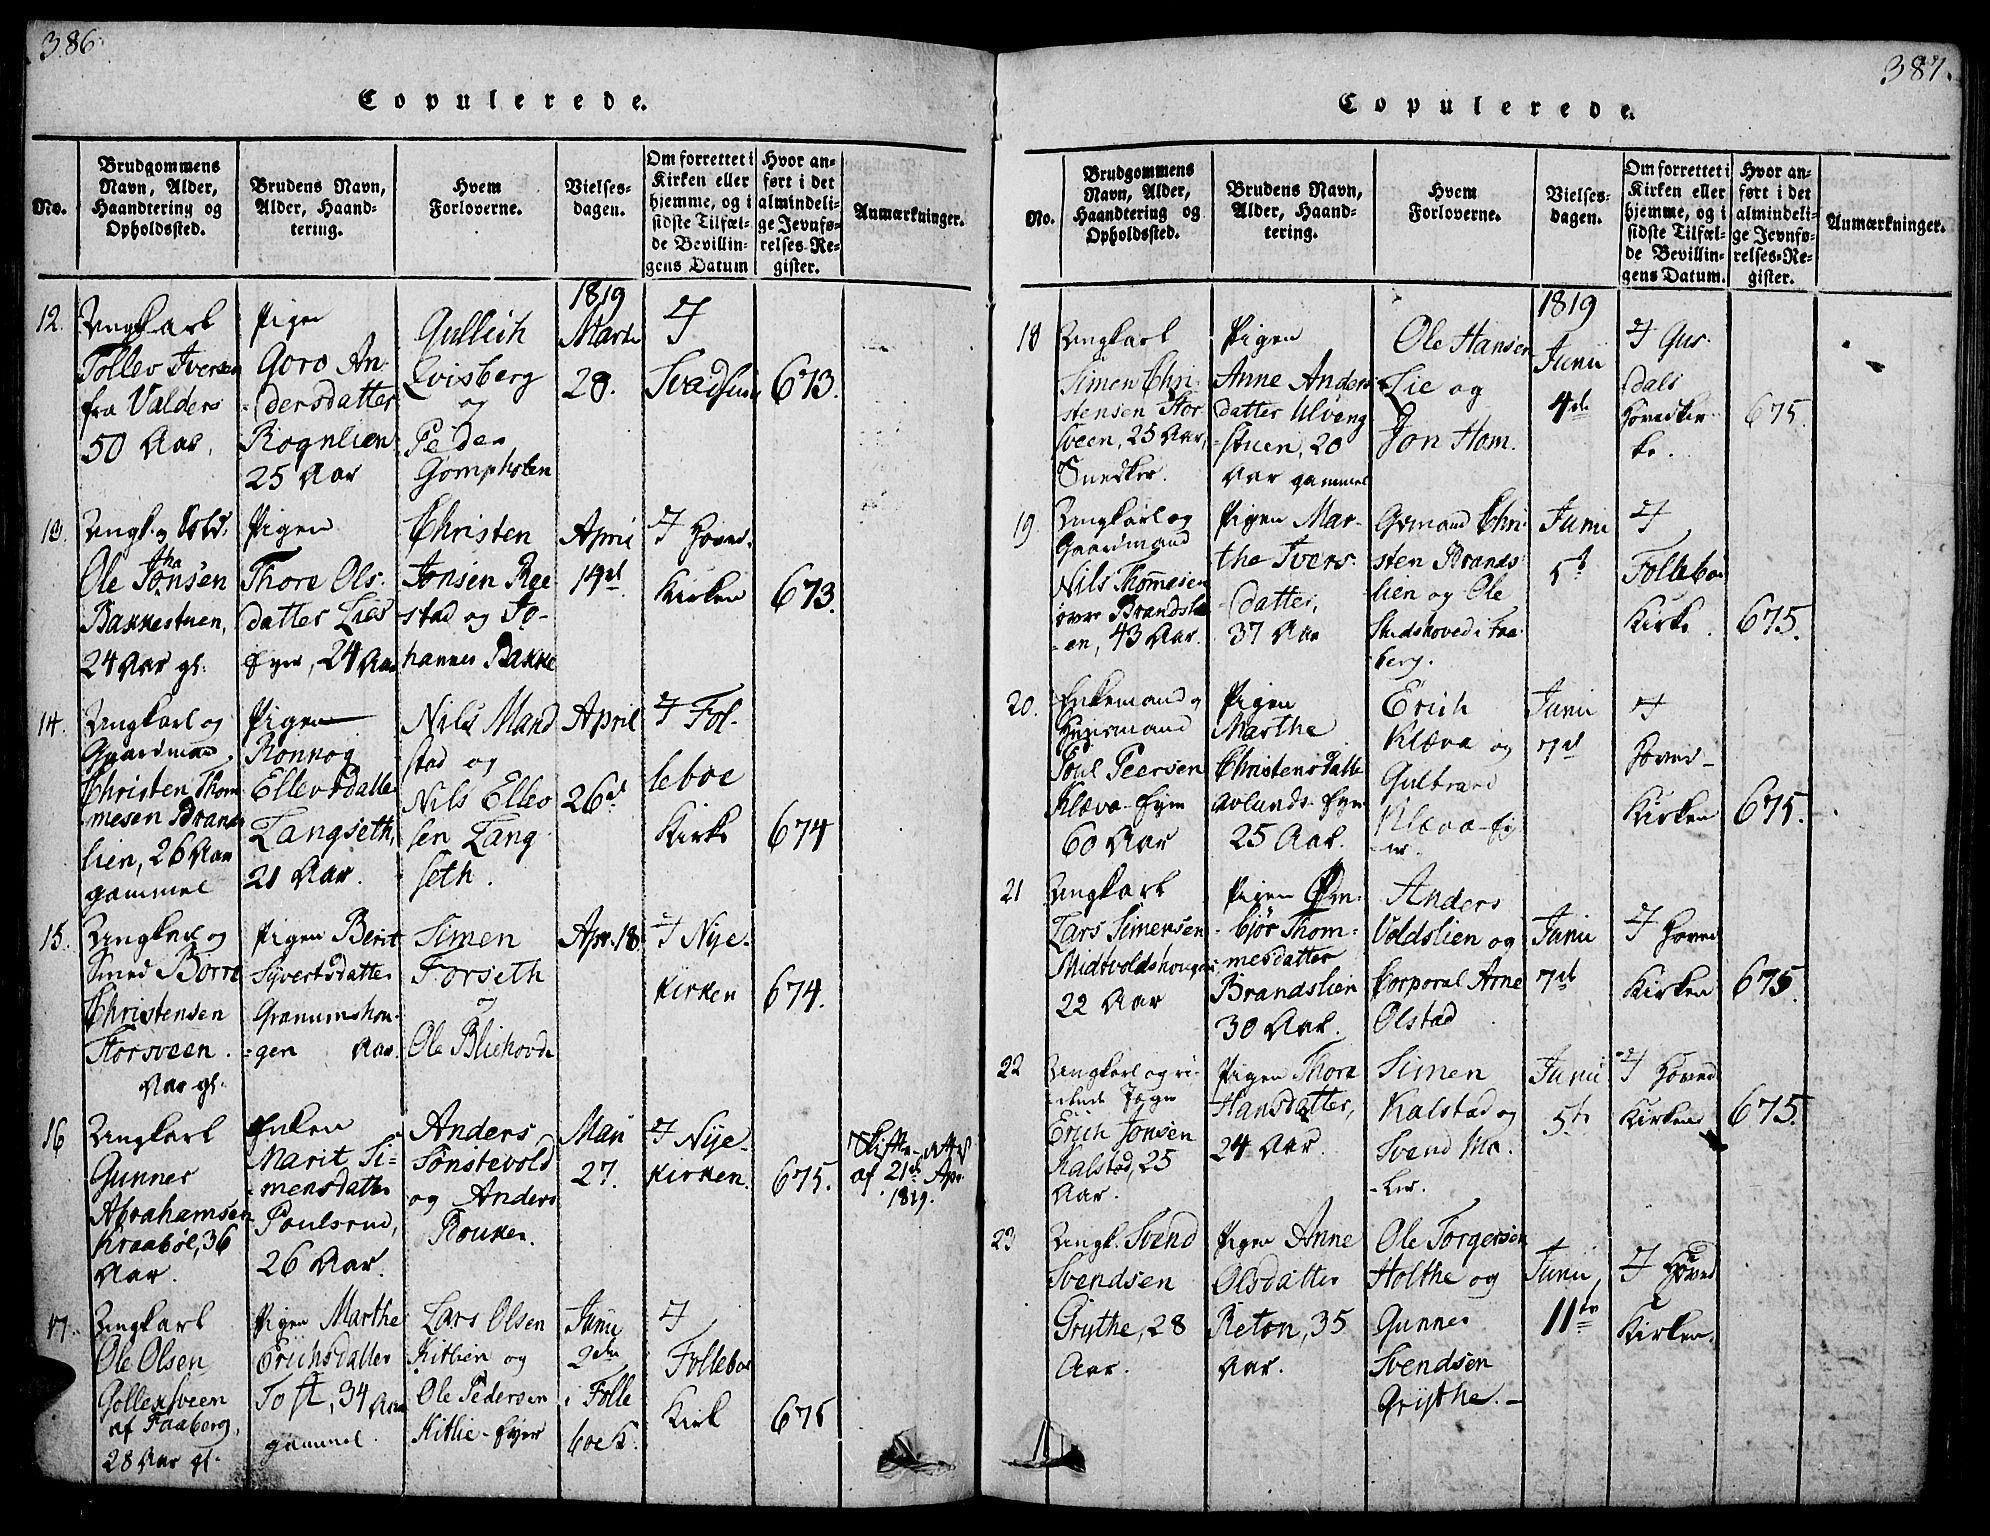 386.
Copulerede.
No.
Brudgommens Navn, Alder, Haandtering og Opholdssted.
Brudens Navn, Alder, Haandtering.
Hvem Forloverne.
Vielsesdagen.
Om forrettet i Kirken eller hjemme, og i sidste Tilfælde Bevillingens Datum
Hvor anført i det almindelige Jevnførelses-Register.
Anmærkninger.
12.
Ungkarl
Tollev Iversen
fra Valders
50 Aar,
Pigen
Goro An-
dersdatter
Rognlien
25 Aar
Gullich
Qvisberg
og
Peder
1819
Marti
28.
I
Svadsum
673.
13.
Ole Jonsen
Bakkestuen,
24 Aar gl.
Pigen
Thore Ols-
datter Lies
Eyer, 24 Aar
Christen
Jonsen Ree
stad og Jo-
hannes Bakke
April
I Hoved-
Kirken
673.
14.
Ungkarl og
Gaardmand
Christen Thom
mesen Brands
lien, 26 Aar
gammel
Pigen
Ronnog
Ellevsdatter
Langseth,
21 Aar.
Nils Mand
stad og
Nils Ellev
sen Lang
seth.
April
26de
I Fol-
leboe
Kirke
674
15.
Ungkarl og
Smed Borre
Christensen
Storsveen.
Aar gl.
Pigen Berit
Syvertsdatter
Granumshou-
gen Aar.
Simen
Forseth
og
Ole Bliehovde
Apr. 18
I Nye-
kirken
674.
16
Ungkarl
Gunner
Abrahamsen
Kraabøl, 36
Aar.
Enken
Marit Si-
mensdatter
Poulsrud,
26 Aar.
Anders
Sønstevold
og Anders
Rouken.
Maii
27.
I Nye-
kirken.
675.
af 21de Apr.
1819.
17.
Ungkarl
Ole Olsen
af Faaberg,
28 Aar gl.
Pigen Marthe
Erichsdatter
Toft, 34 Aar
gammel.
Lars Olsen
Kitlien og
Ole Pedersen
Kitlie-Eyer
Junii
2den
i Folle
boe K.
I
Folleboe
Kirk
675
387.
Copulerede.
No.
Brudgommens Navn, Alder, Haandtering og Opholdssted.
Brudens Navn, Alder, Haandtering.
Hvem Forloverne.
Vielsesdagen.
Om forrettet i Kirken eller hjemme, og i sidste Tilfælde Bevillingens Datum.
Hvor anført i det almindelige Jevnførelses-Register.
Anmærkninger.
18
Ungkarl
Simen Chri-
stensen Stor
sveen, 25 Aar,
Snedker.
Pigen
Anne Anders
datter Ulveng
stuen, 20
Aar gammel
Ole Hansen
Lie og
Jon Hom.
1819
Junii
4de
I Gus-
dals
Hovedkir-
ke.
675.
19.
Ungkarl og
Gaardmand
Nils Thomesen
øvre Brandsli
en, 43 Aar.
Pigen Mar-
the Ivers-
datter,
37 Aar
Grmand Chri
sten Brands-
lien og Ole
Skidshoved i Faa-
berg.
Junii
5te
I
Folleboe
Kirke.
675.
20.
Enkemand og
Huusmand
Poul Peersen
Klæva-Eyer
60 Aar
Pigen
Marthe
Christensdatter
Avlunds-Eyer
25 Aar.
Erich
Klæva og
Gulbrand
Klæva-Ey-
er.
Junii
7de
I
Hoved-
Kirken
675.
21
Ungkarl
Lars Simensen
22 Aar
Pigen Øm-
bjør Thom-
mesdatter
Brandslien
30 Aar.
Anders
Voldslien og
Corporal Arne
Olstad
Junii
7de
I Hoved
Kirken
675.
22
Ungkarl og ri-
dende Jæger
Erich Jonsen
Kalstad, 25
Aar.
Pigen Thore
Hansdatter,
24 Aar.
Simen
Kalstad og
Svend Ma-
ler.
Junii
5te
I Hoved
Kirken
675.
23
Ungk. Svend
Svendsen
Grythe, 28
Aar.
Pigen Anne
Olsdatter
Reton, 35
Aar.
Ole Torgersen
Holthe og
Gunner
Svendsen
Grythe.
Junii,
11te
I Hoved
Kirken.